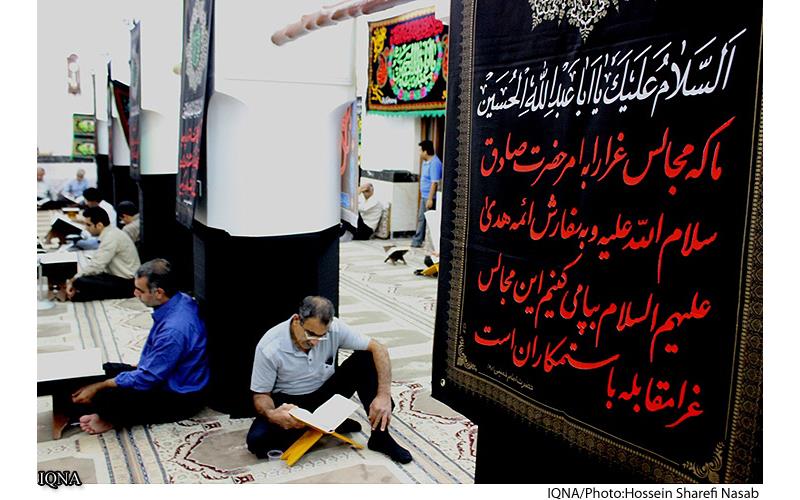 السَّلامُ عَلَیْكَ یا اَبا عَبْدِاللّهِ الْحُسَیْن
ما که مجالس عزا را به امر حضرت صادق
سلام الله علیه و به سفارش ائمه هدی
علیهم السلام بپا می کنیم این مجالس
عزا مقابله با ستمکاران است
حضرت امام خمینی (ره)
IQNA
IQNA/Photo:Hossein Sharefi Nasab